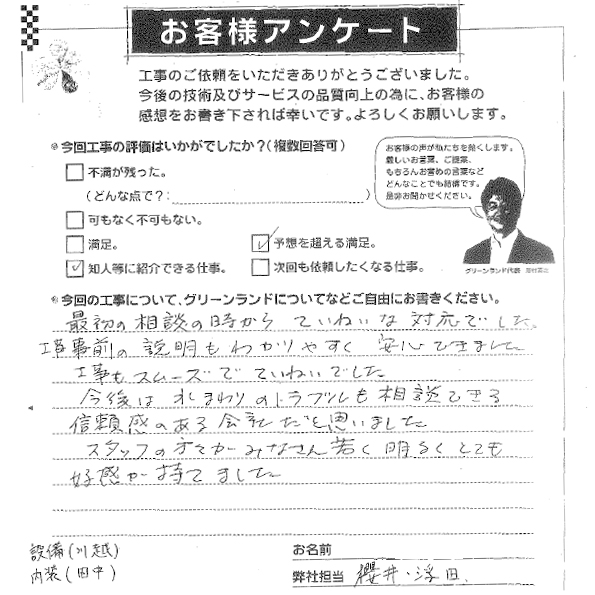 お客様アンケート
工事のご依頼をいただきありがとうございました。
今後の技術及びサービスの品質向上の為に、お客様の
感想をお書き下されば幸いです。よろしくお願いします。
今回工事の評価はいかがでしたか?(複数回答可)
不満が残った。
(どんな点で?:)
可もなく不可もない。
満足。
予想を超える満足。
知人等に紹介できる仕事。
次回も依頼したくなる仕事。
お客様の声が私たちを熱くします。
厳しいお言葉、ご提案、
もちろんお誉めの言葉など
どんなことでも結構です。
是非お聞かせください。
グリーンランド代表
今回の工事について、グリーンランドについてなどご自由にお書きください。
最初の相談の時から ていねいな対応でした。
工事前の説明もわかりやすく 安心できました
工事もスムーズで ていねいでした
今後は水まわりのトラブルも相談できる
信頼感のある会社だと思いました
スタッフの方々がみなさん若く明るくとても
好感が持てました
設備(川越)
内装(田中)
お名前
弊社担当 櫻井・浮田